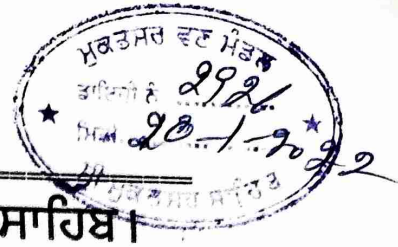 ਮੁਕਤਸਰ ਵਣ ਮੰਡਲ
ਡਾਇਰੀ ਨੰ 2926
ਮਿਤੀ 28-1-2022
ਸ੍ਰੀ ਮੁਕਤਸਰ ਸਾਹਿਬ
ਸਾਹਿਬ।